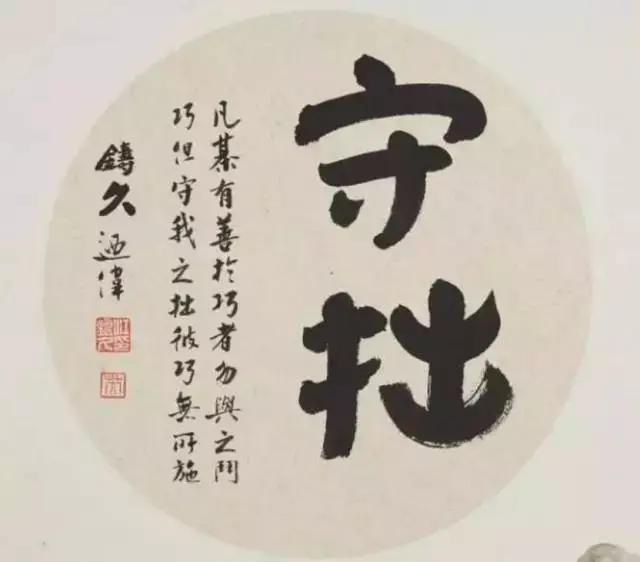 守拙
凡棊有善於巧者勿與之鬥
巧但守我之拙彼巧無所施
鑄久
迺偉